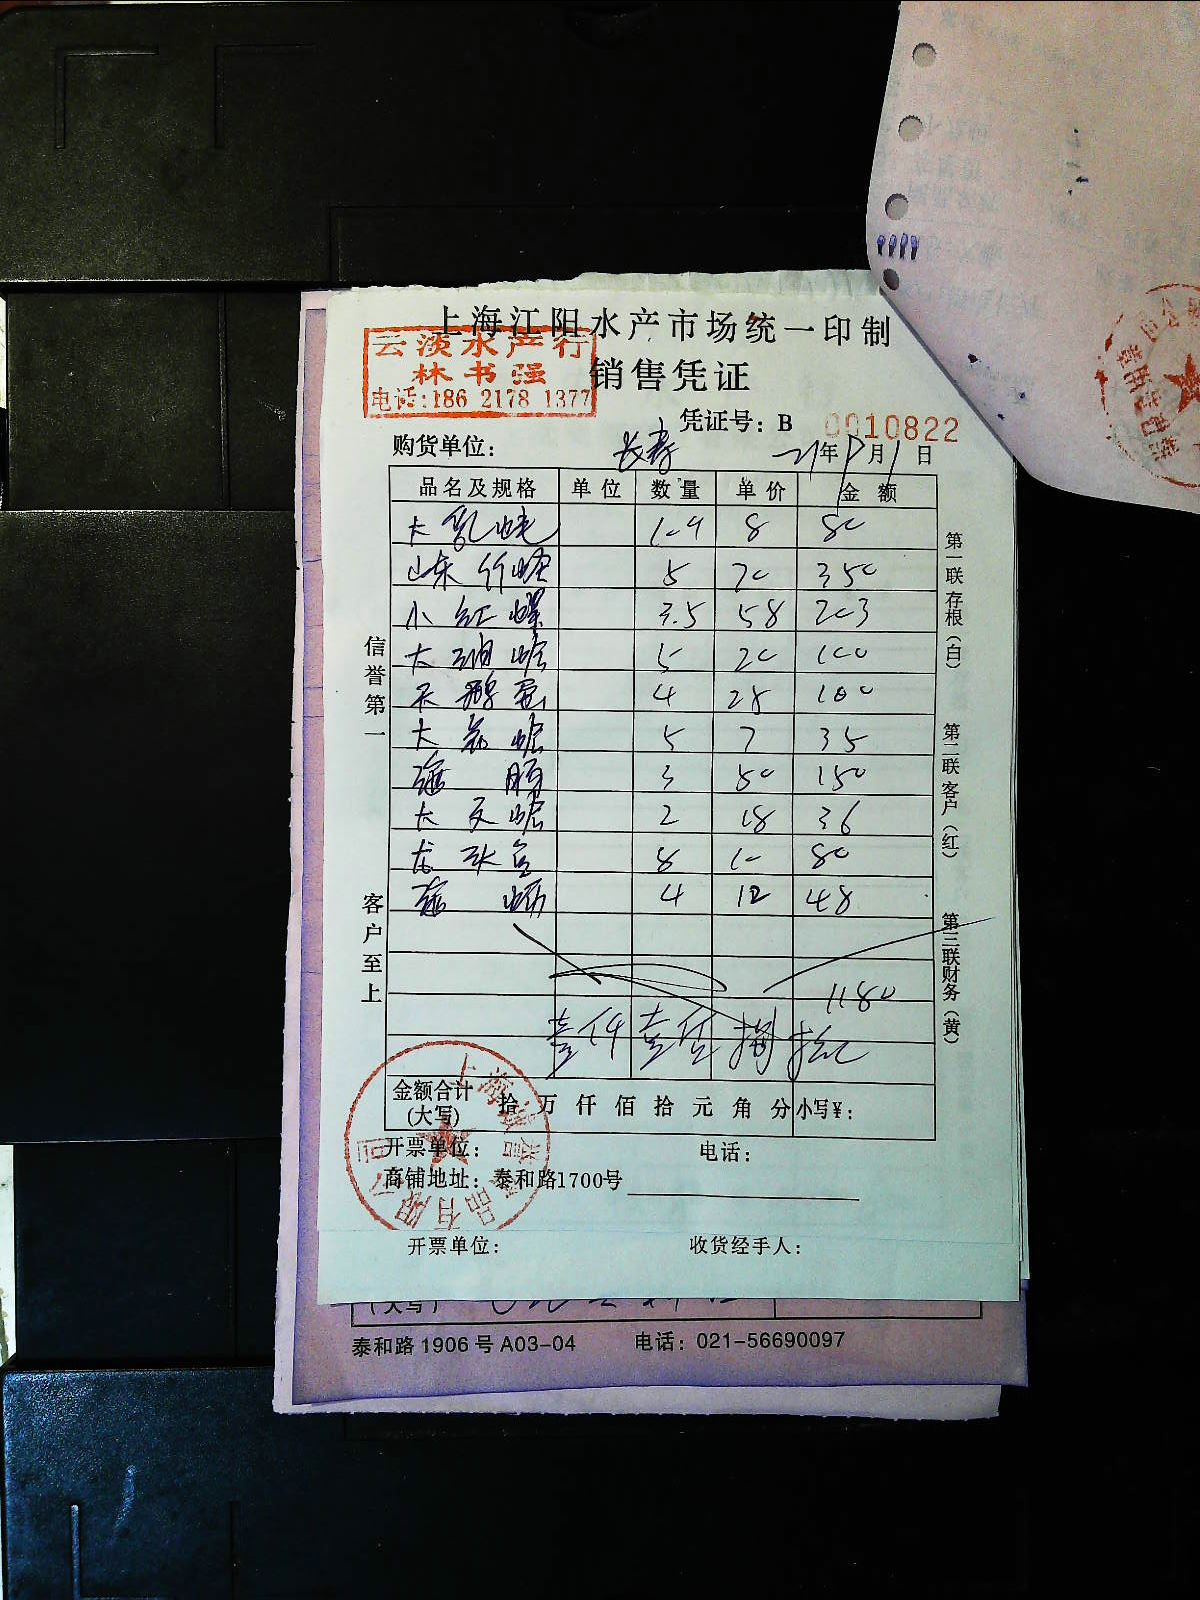 上海江阳水产市场统一印制
云淡水产行
林书强
电话:186 2178 1377
销售凭证
凭证号: B 0010822
购货单位: 长寿 21年 月1日
品名及规格 单位 数量 单价 金额
8 80
山东竹蛏 5 70 350
小红螺 3.5 58 203
大 蛤 5 20 100
天鹅蛋 4 28 100
大 蛤 5 7 35
3 50 150
大文蛤 2 18 36
龙头 8 10 80
4 12 48
1180
壹仟壹佰捌拾元
金额合计(大写) 拾 万 仟 佰 拾 元 角 分 小写¥:
开票单位: 电话:
商铺地址: 泰和路1700号
开票单位: 收货经手人:
信誉第一
客户至上
第一联 存根(白)
第二联 客户(红)
第三联 财务(黄)
(大写)
泰和路 1906 号 A03-04 电话: 021-56690097